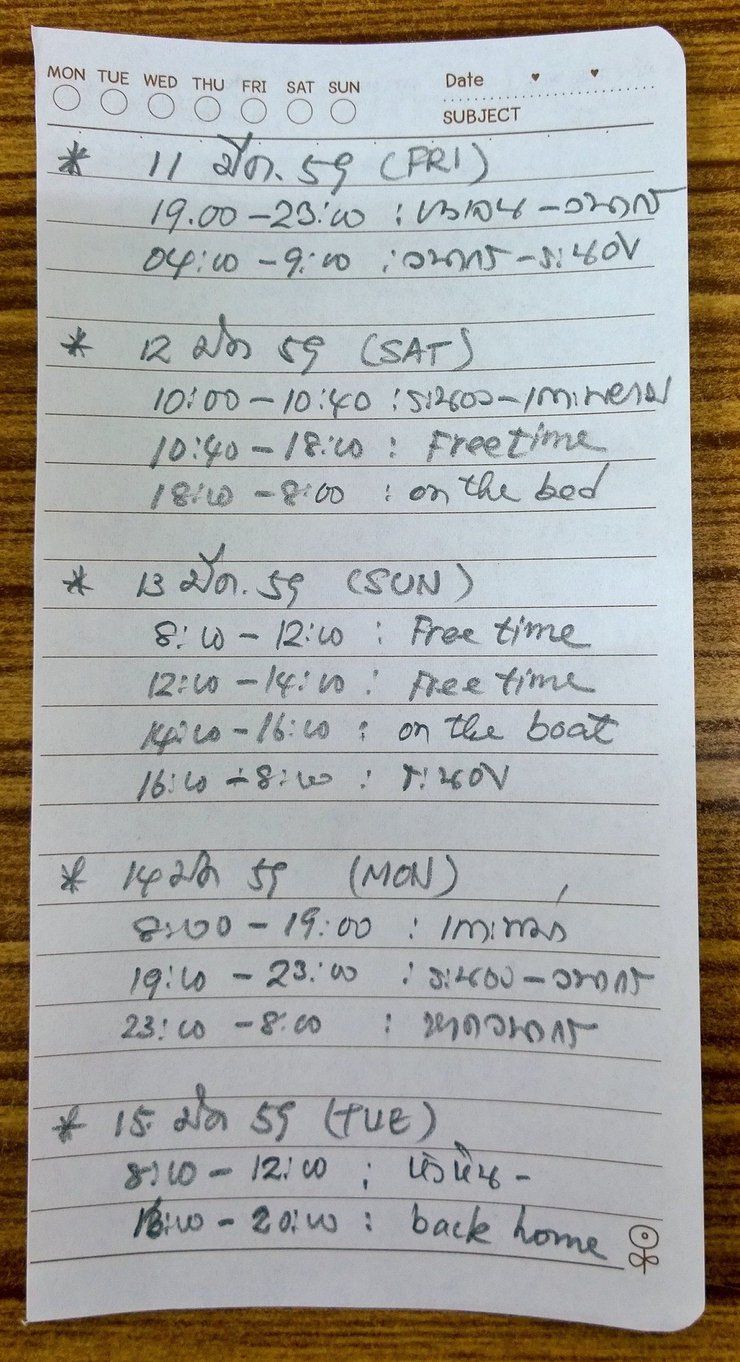 MON TUE WED THU FRI SAT SUN Date
SUBJECT
* 11 มีค. 59 (FRI)
19.00 - 23:00 : - วนากร
04:00 - 9:00 : วนากร - ระนอง
* 12 มีค 59 (SAT)
10:00 - 10:40 : ระนอง - เกาะพยาม
10:40 - 18:00 : Free time
18:00 - 8:00 : on the bed
* 13 มีค. 59 (SUN)
8:00 - 12:00 : Free time
12:00 - 14:00 : Free time
14:00 - 16:00 : on the boat
16:00 - 8:00 : ระนอง
* 14 มีค 59 (MON)
8:00 - 19:00 :
19:00 - 23:00 : ระนอง - วนากร
23:00 - 8:00 : หาดวนากร
* 15 มีค 59 (TUE)
8:00 - 12:00 : หัวหิน -
13:00 - 20:00 : back home